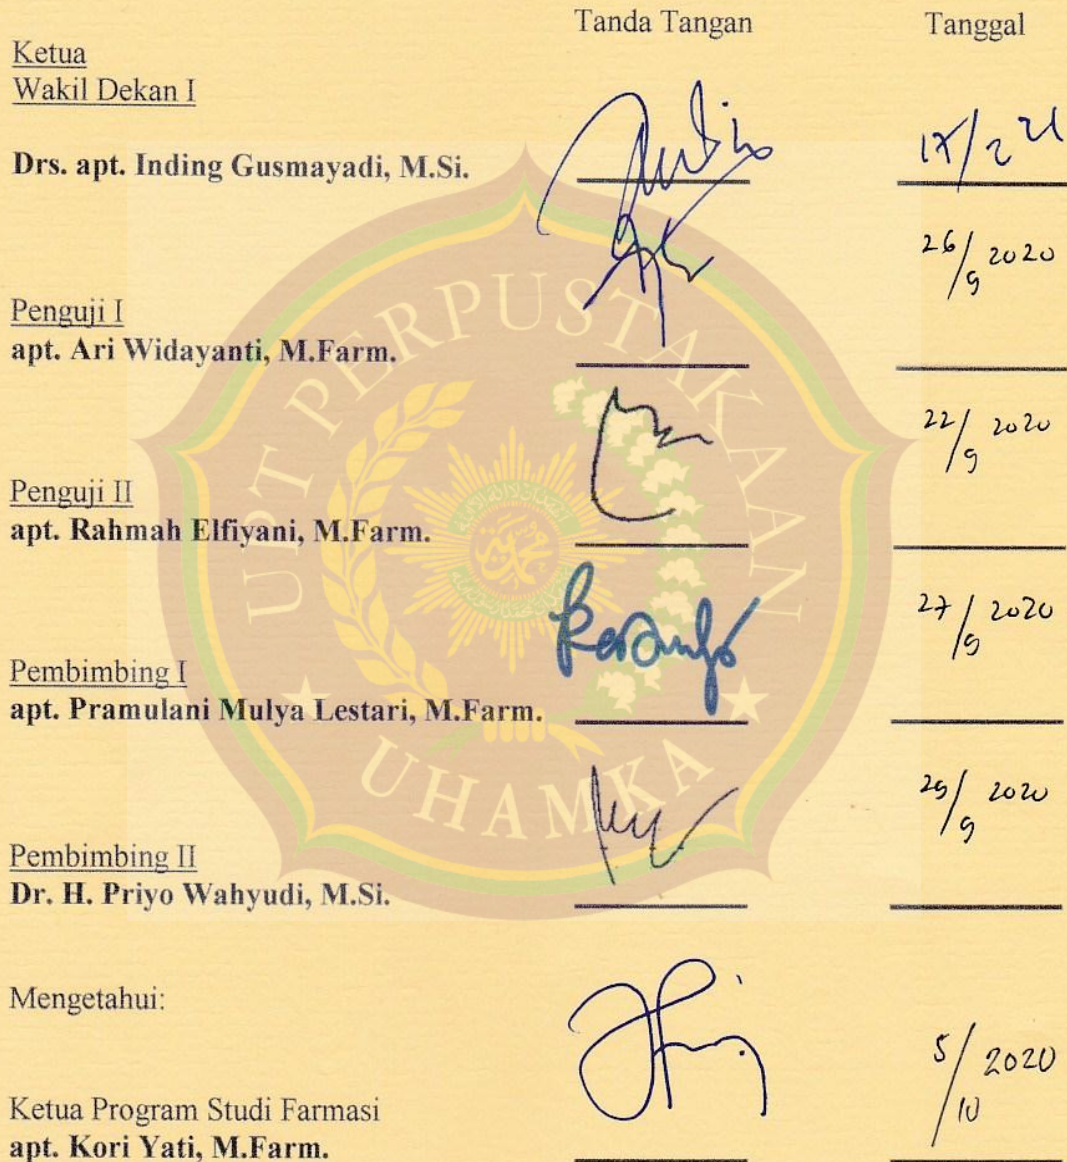 Tanda Tangan Tanggal
Ketua
Wakil Dekan I
Drs. apt. Inding Gusmayadi, M.Si.
17/2 21
26/9 2020
Penguji I
apt. Ari Widayanti, M.Farm.
22/9 2020
Penguji II
apt. Rahmah Elfiyani, M.Farm.
27/9 2020
Pembimbing I
apt. Pramulani Mulya Lestari, M.Farm.
29/9 2020
Pembimbing II
Dr. H. Priyo Wahyudi, M.Si.
Mengetahui:
5/10 2020
Ketua Program Studi Farmasi
apt. Kori Yati, M.Farm.
UPT PERPUSTAKAAN
UHAMKA